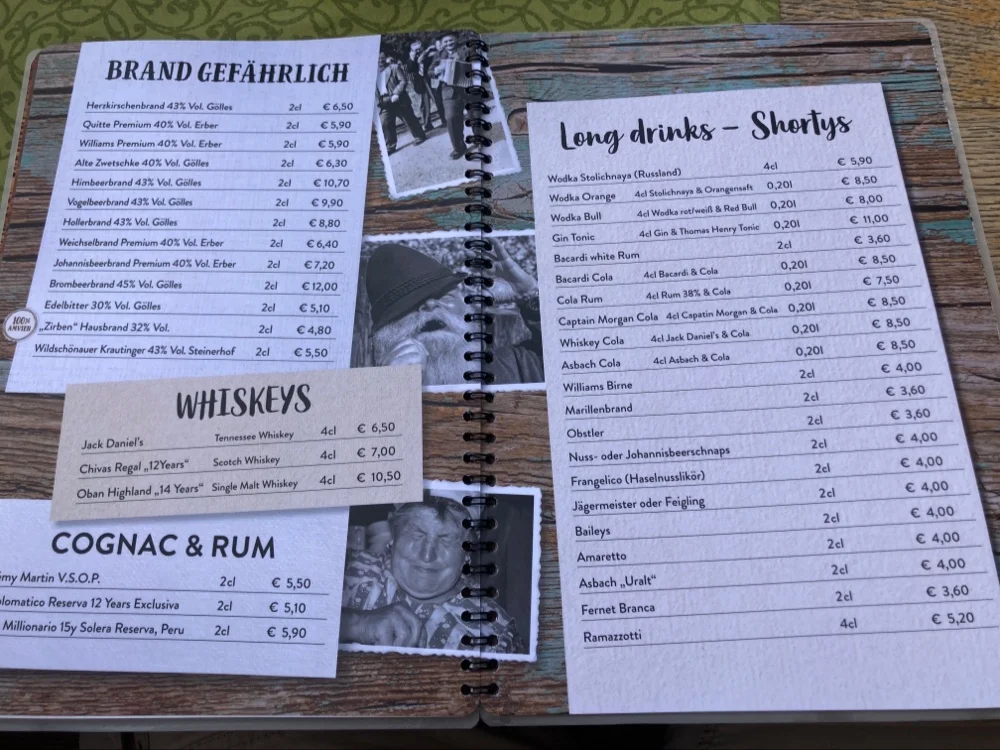 BRAND GEFÄHRLICH
Herzkirschenbrand 43% Vol. Gölles 2cl € 6,50
Quitte Premium 40% Vol. Erber 2cl € 5,90
Williams Premium 40% Vol. Erber 2cl € 5,90
Alte Zwetschke 40% Vol. Gölles 2cl € 6,30
Himbeerbrand 43% Vol. Gölles 2cl € 10,70
Vogelbeerbrand 43% Vol. Gölles 2cl € 9,90
Hollerbrand 43% Vol. Gölles 2cl € 8,80
Weichselbrand Premium 40% Vol. Erber 2cl € 6,40
Johannisbeerbrand Premium 40% Vol. Erber 2cl € 7,20
Brombeerbrand 45% Vol. Gölles 2cl € 12,00
Edelbitter 30% Vol. Gölles 2cl € 5,10
„Zirben“ Hausbrand 32% Vol. 2cl € 4,80
Wildschönauer Krautinger 43% Vol. Steinerhof 2cl € 5,50
WHISKEYS
Jack Daniel's Tennessee Whiskey 4cl € 6,50
Chivas Regal „12Years“ Scotch Whiskey 4cl € 7,00
Oban Highland „14 Years“ Single Malt Whiskey 4cl € 10,50
COGNAC & RUM
émy Martin V.S.O.P. 2cl € 5,50
plomatico Reserva 12 Years Exclusiva 2cl € 5,10
Millionario 15y Solera Reserva, Peru 2cl € 5,90
Long drinks – Shortys
Wodka Stolichnaya (Russland) 4cl € 5,90
Wodka Orange 4cl Stolichnaya & Orangensaft 0,20l € 8,50
Wodka Bull 4cl Wodka rot/weiß & Red Bull 0,20l € 8,00
Gin Tonic 4cl Gin & Thomas Henry Tonic 0,20l € 11,00
Bacardi white Rum 2cl € 3,60
Bacardi Cola 4cl Bacardi & Cola 0,20l € 8,50
Cola Rum 4cl Rum 38% & Cola 0,20l € 7,50
Captain Morgan Cola 4cl Capatin Morgan & Cola 0,20l € 8,50
Whiskey Cola 4cl Jack Daniel's & Cola 0,20l € 8,50
Asbach Cola 4cl Asbach & Cola 0,20l € 8,50
Williams Birne 2cl € 4,00
Marillenbrand 2cl € 3,60
Obstler 2cl € 3,60
Nuss- oder Johannisbeerschnaps 2cl € 4,00
Frangelico (Haselnusslikör) 2cl € 4,00
Jägermeister oder Feigling 2cl € 4,00
Baileys 2cl € 4,00
Amaretto 2cl € 4,00
Asbach „Uralt“ 2cl € 4,00
Fernet Branca 2cl € 3,60
Ramazzotti 4cl € 5,20